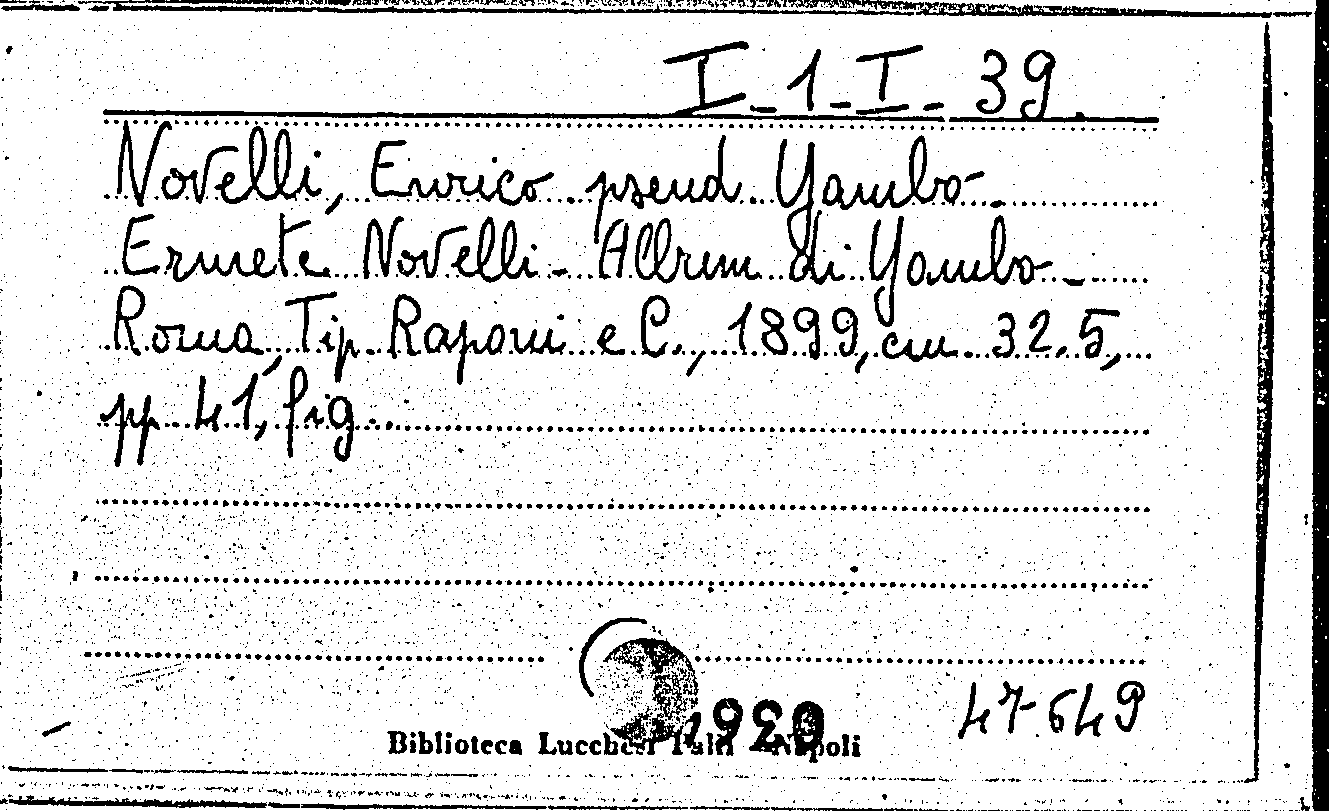 I-1-I-39.
Novelli, Enrico pseud. Yambo-
Ermete Novelli- Album di Yambo-
Roma, Tip. Raponi e C., 1899, cm. 32.5,
pp. 41, fig.
47.649
Biblioteca Lucchesi Palli Napoli